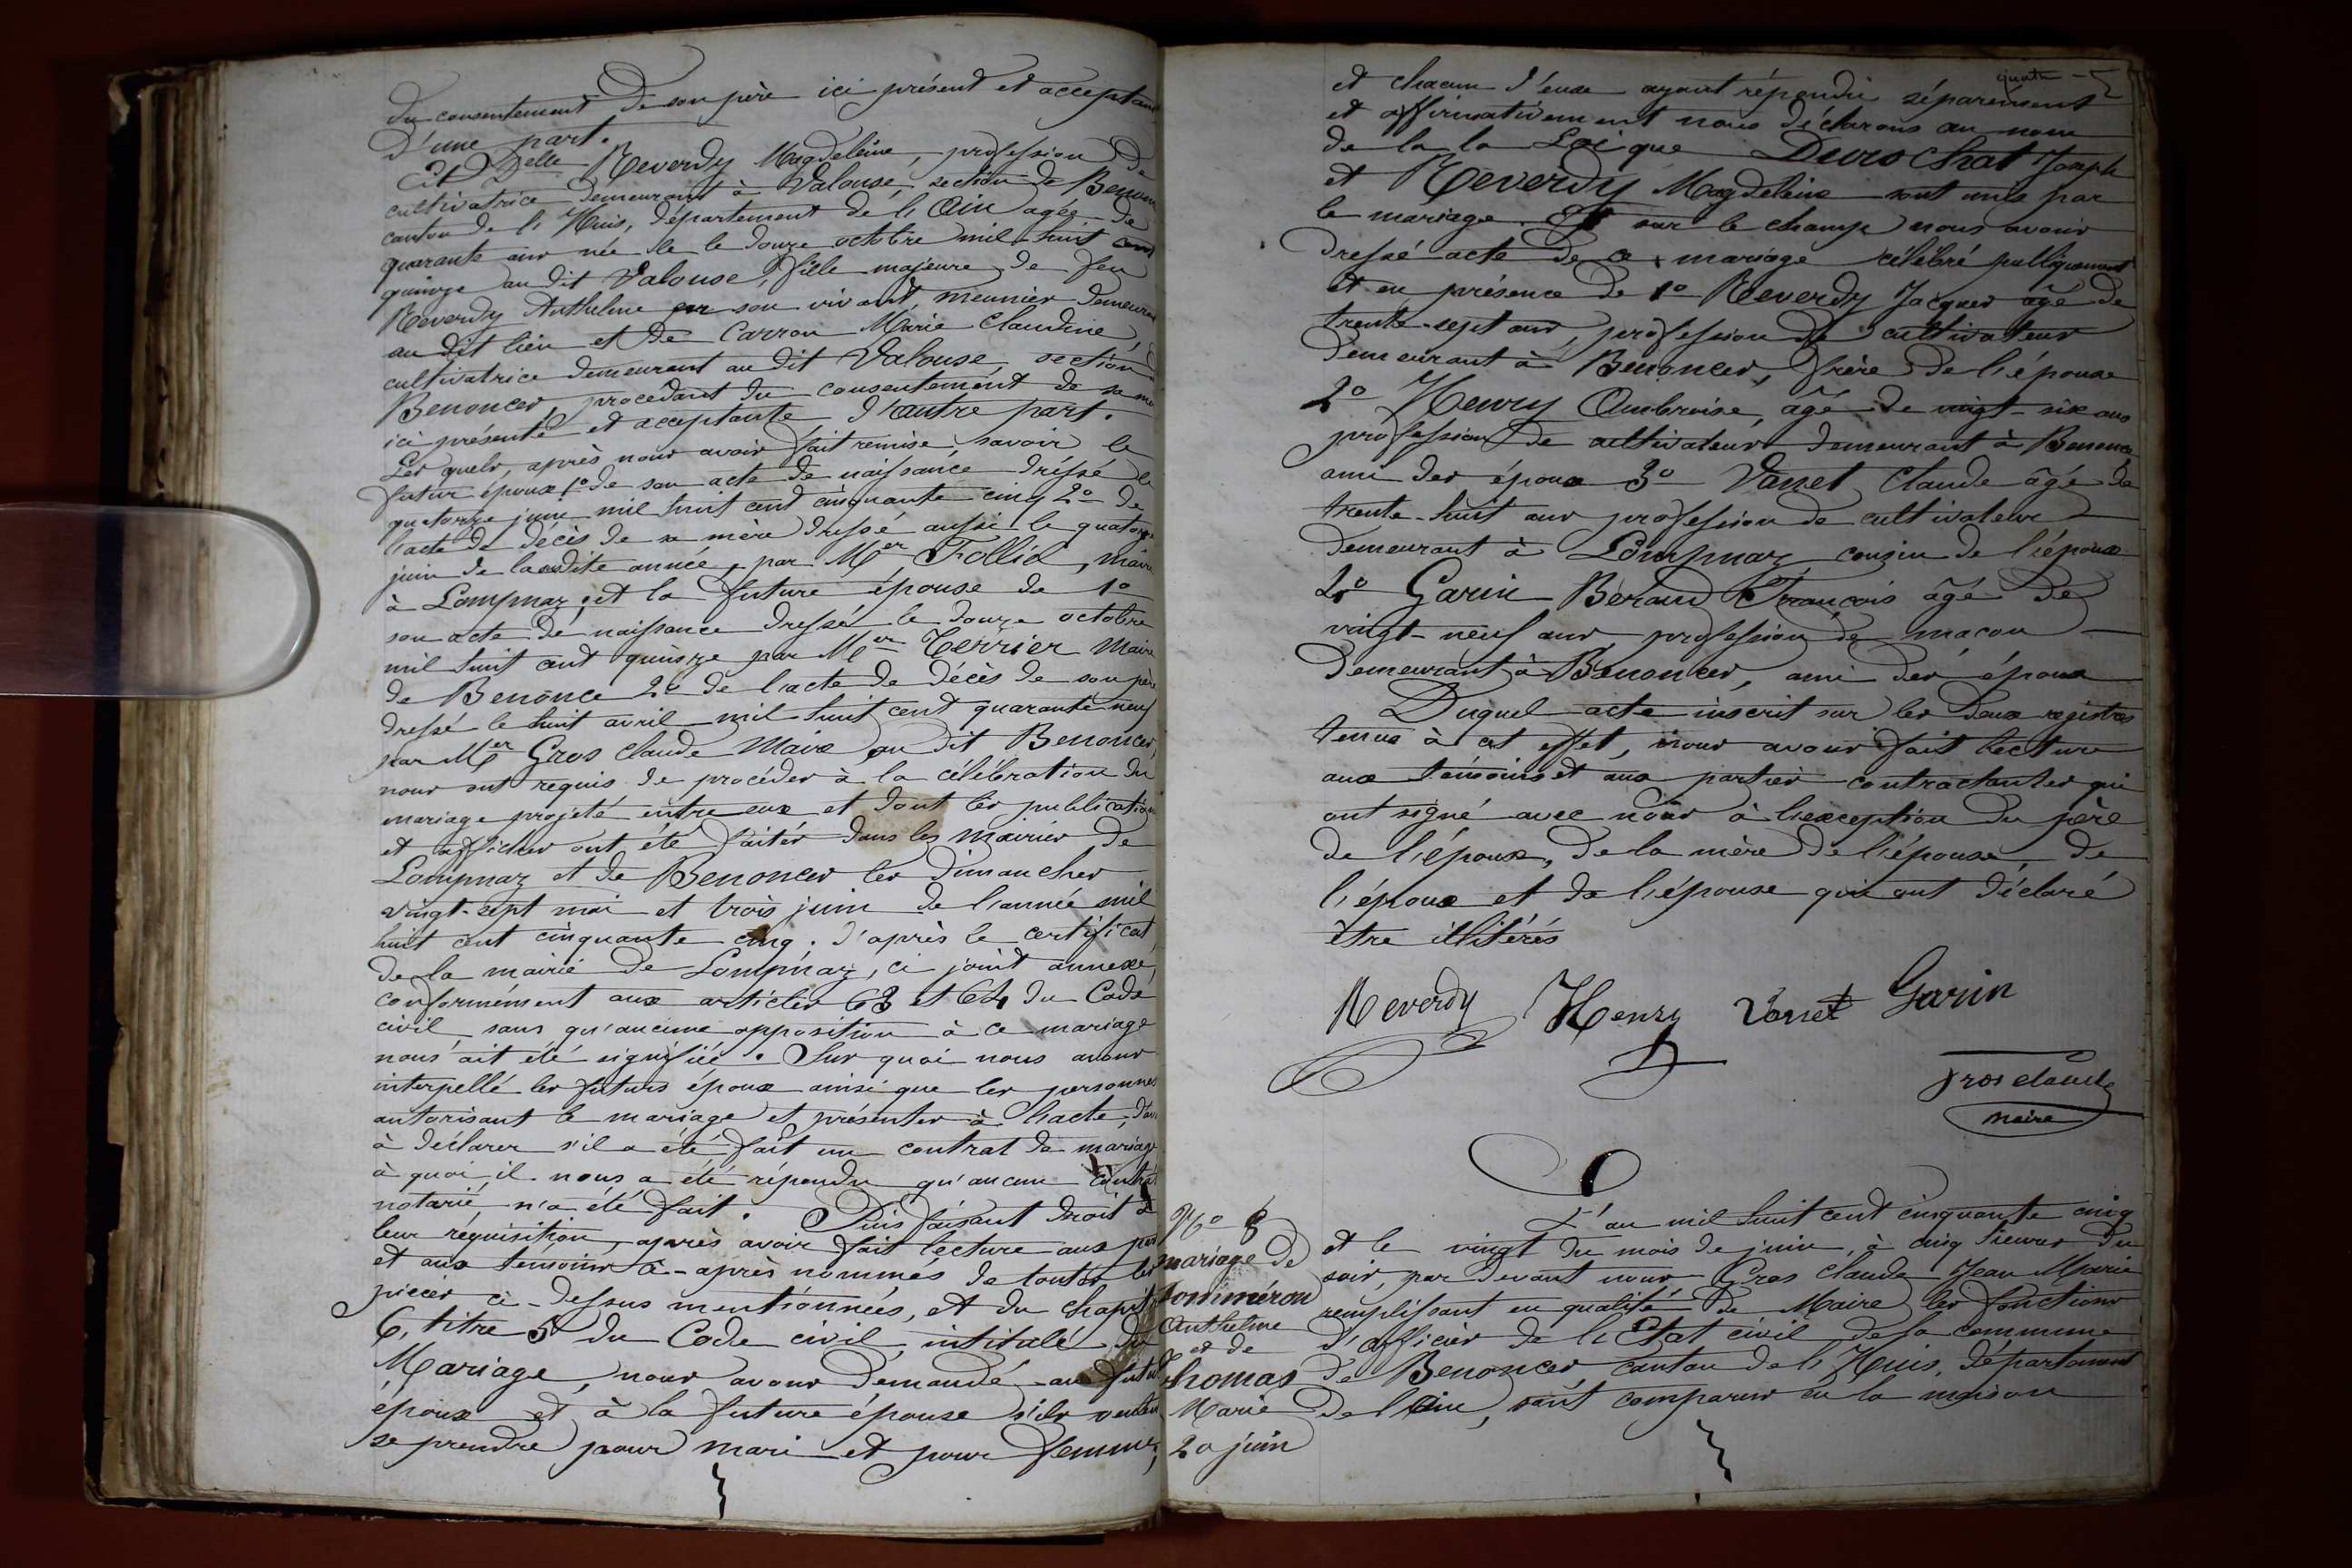 du consentement de son père ici présent et acceptant
d'une part.
Et Delle Reverdy Magdeleine, profession de
cultivatrice demeurant à Valouse, section de Benon
canton de l'Huis, département de l'Ain agée de
quarante ans née le le douze octobre mil huit cent
quinze au dit Valouse, fille majeure de feu
Reverdy Anthelme en son vivant, meunier demeurant
au dit lieu et de Carron Marie Claudine,
cultivatrice demeurant au dit Valouse, section
Benonces, procédant du consentement de sa mère
ici présente et acceptante d'autre part.
Les quels, après nous avoir fait remise, savoir le
futur époux 1o de son acte de naissance dréssé le
quatorze juin mil huit cent cinquante cinq 2o de
l'acte de décès de sa mère dressé aussi le quatorze
juin de la dite année, par Mer Follid, maire
à Lompnaz; et la future épouse de 1o
son acte de naissance dressé le douze octobre
mil huit cent quinze par Mer Terrier Maire
de Benonce 2o de l'acte de décès de son père
dressé le huit avril mil huit cent quarante neuf
par Mer Gros Claude Maire au dit Benonces,
nous ont requis de procéder à la célébration du
mariage projeté entre eux et dont les publications
et affiches ont été faites dans les mairies de
Lompnaz et de Benonces les dimanches
vingt-sept mai et trois juin de l'année mil
huit cent cinquante cinq. d'après le certificat
de la mairie de Lompnaz, ci joint annexé,
conformément aux articles 63 et 64 du Code
civil sans qu'aucune opposition à ce mariage
nous ait été signifiée. Sur quoi nous avons
interpellé les futurs époux ainsi que les personnes
autorisant le mariage et présentes à l'acte,
à déclarer s'il a été fait un contrat de mariage
à quoi, il nous a été répondu qu'aucun contrat
notarié n'a été fait. Puis faisant droit à
leur réquisition, après avoir fait lecture aux
et aux témoins ci-après nommés de toutes les
pièces ci-dessus mentionnées, et du chapitre
6, titre 5 du Code civil, intitulé du
Mariage, nous avons demandé au futur
époux et à la future épouse s'ils veulent
se prendre pour mari et pour femme;
quatre
et chacun d'eux ayant répondu séparément
et affirmativement nous déclarons au nom
de la la Loi que Durochat Joseph
et Reverdy Magdeleine sont unis par
le mariage. Et sur le champ nous avons
dressé acte de ce mariage célébré publiquement
et en présence de 1o Reverdy Jacques agé de
trente-sept ans, profession de cultivateur
demeurant à Benonces, frère de l'épouse
2o Henry Ambroise, agé de vingt-six ans
profession de cultivateur demeurant à Benonces
ami des époux 3o Vanet Claude âgé de
trente-huit ans profession de cultivateur
demeurant à Lompnaz cousin de l'époux
4o Garin Béraud François âgé de
vingt-neuf ans profession de maçon
demeurant à Benonces, ami des époux
Duquel acte inscrit sur les deux registres
tenus à cet effet, nous avons fait lecture
aux témoins et aux parties contractantes qui
ont signé avec nous à l'exception du père
de l'époux, de la mère de l'épouse, de
l'époux et de l'épouse qui ont déclaré
être illitérés
Reverdy Henry Vanet Garin
Gros Claude
maire
No 8
mariage de
Pomméron
Anthelme
et de
Thomas
Marie
20 juin
L'an mil huit cent cinquante cinq
et le vingt du mois de juin, à cinq heures du
soir, par devant nous Gros Claude Jean Marie
remplissant en qualité de Maire les fonctions
d'officier de l'Etat civil de la commune
de Benonces, canton de l'Huis, département
de l'Ain, sont comparus en la maison